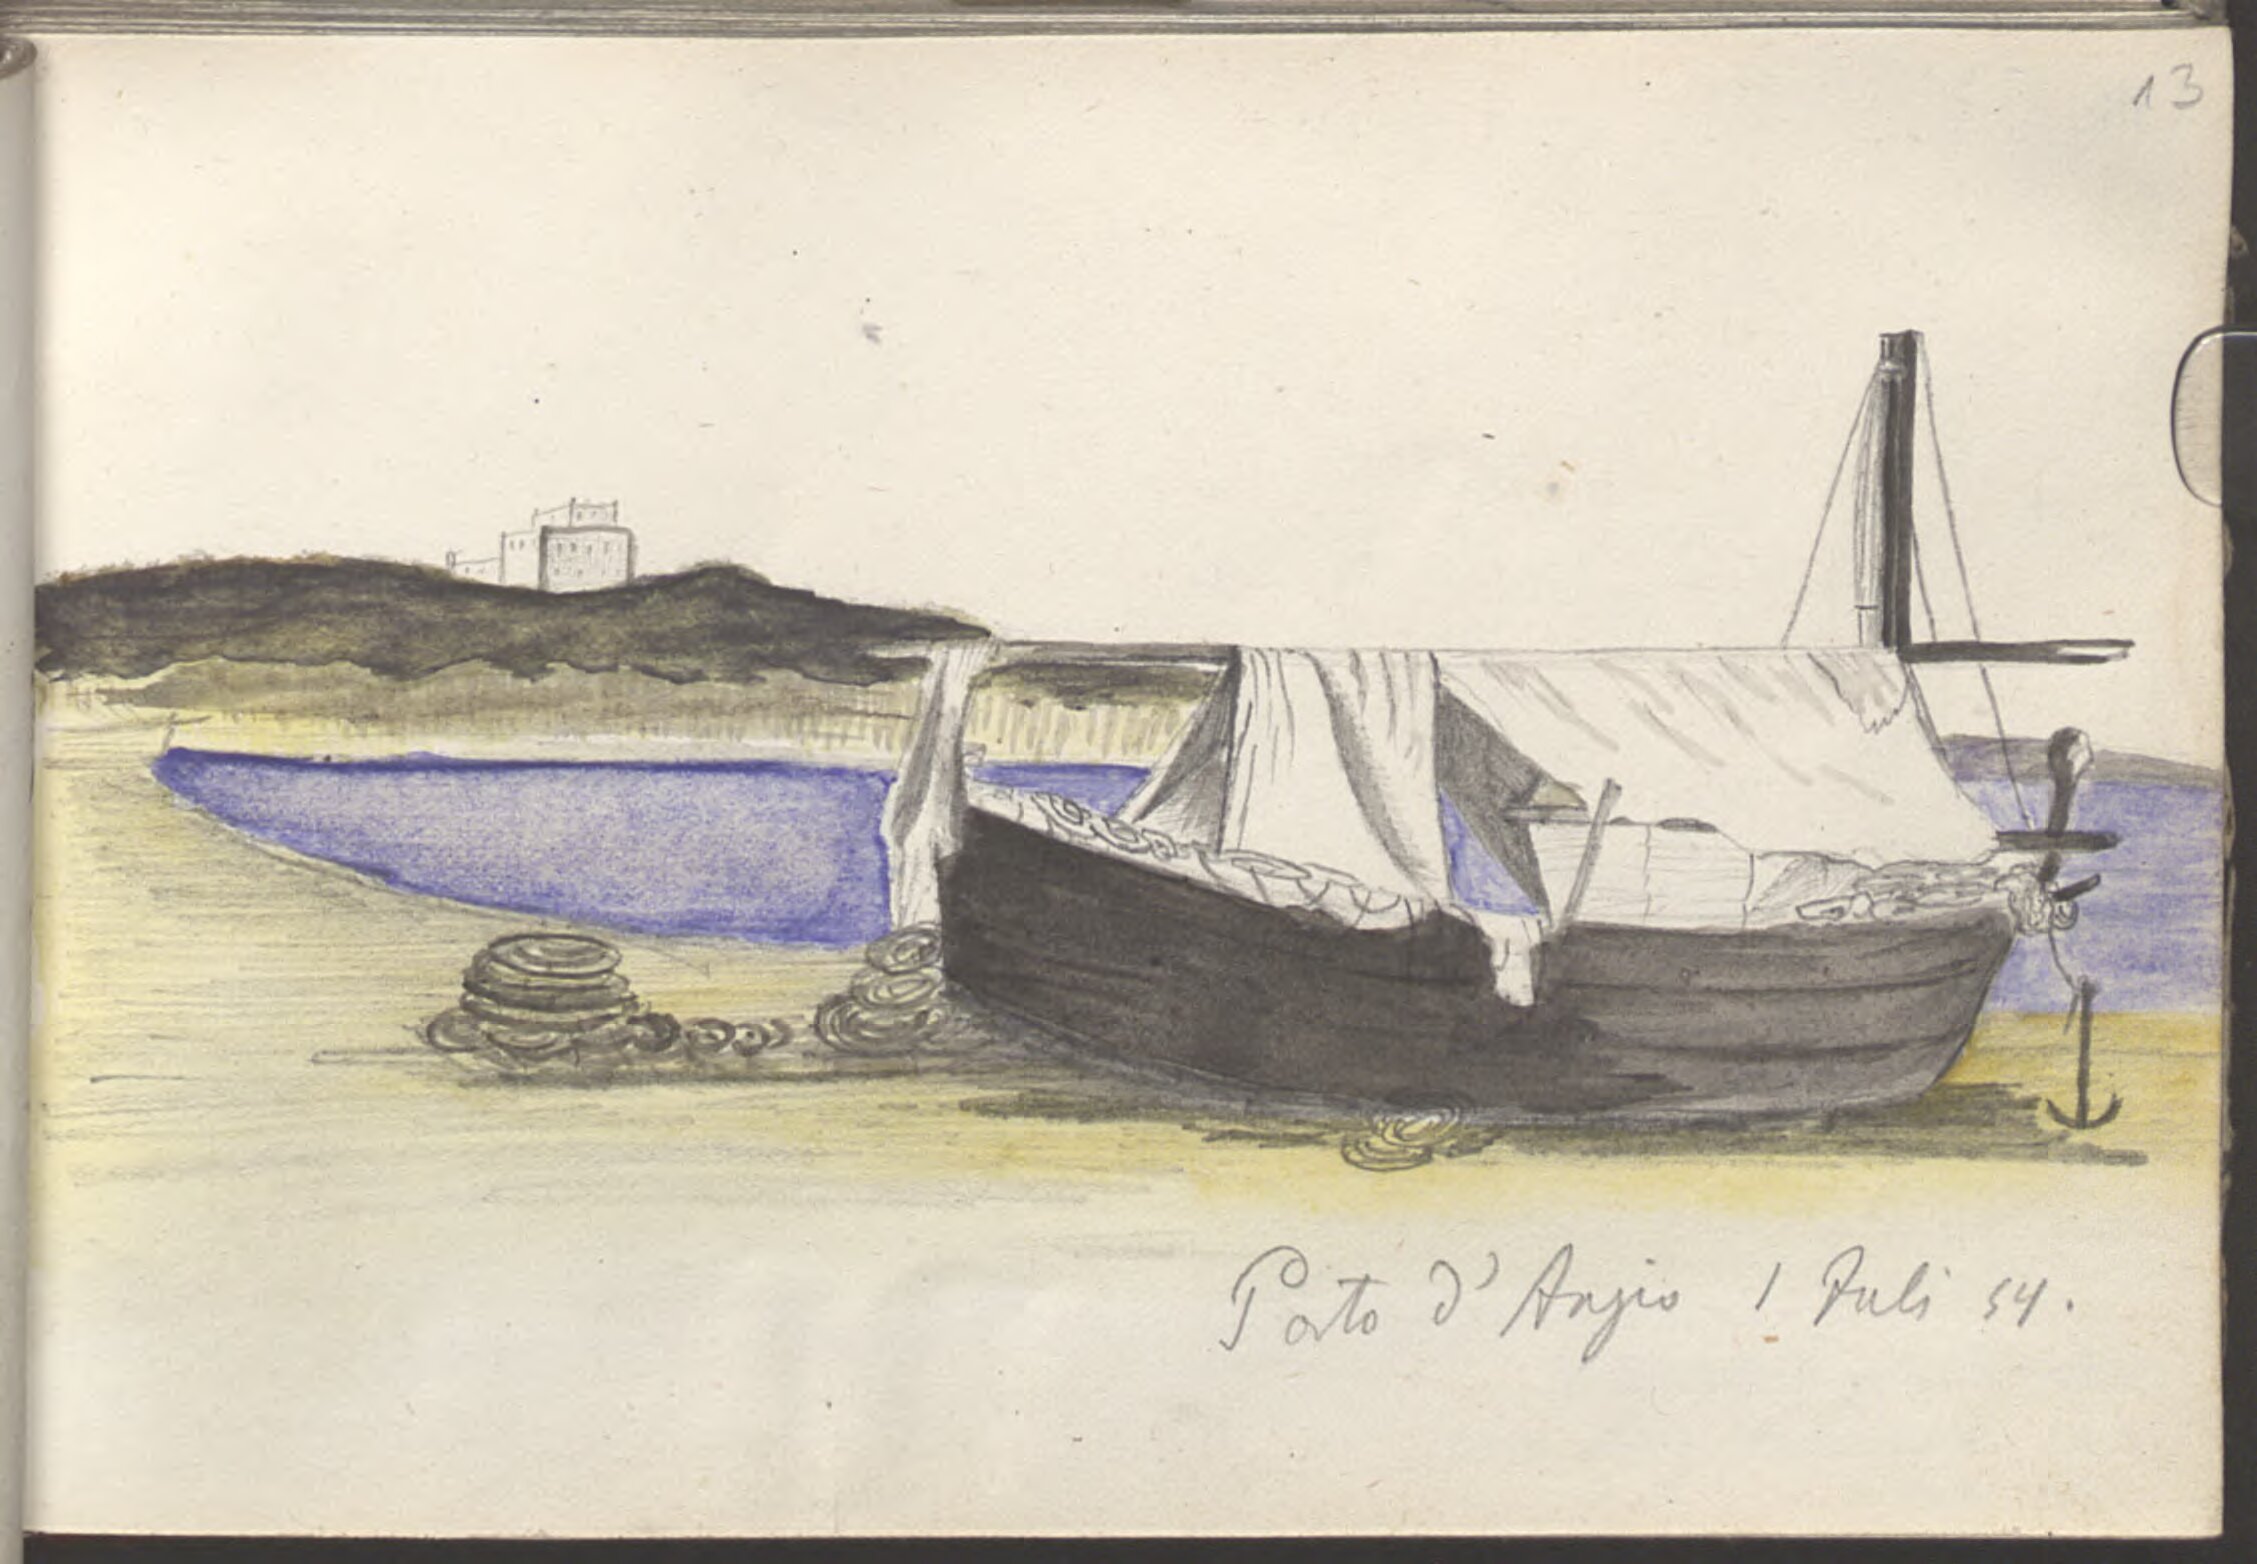 13
Porto d' Anzio 1 Juli 54.